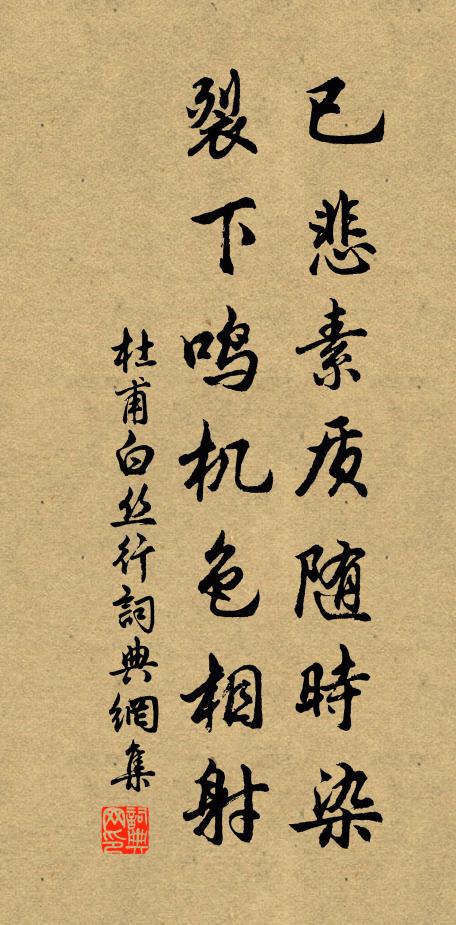 已悲素质随時染
裂下鸣机色相射
杜甫白丝行詞典網集
詞典
网印